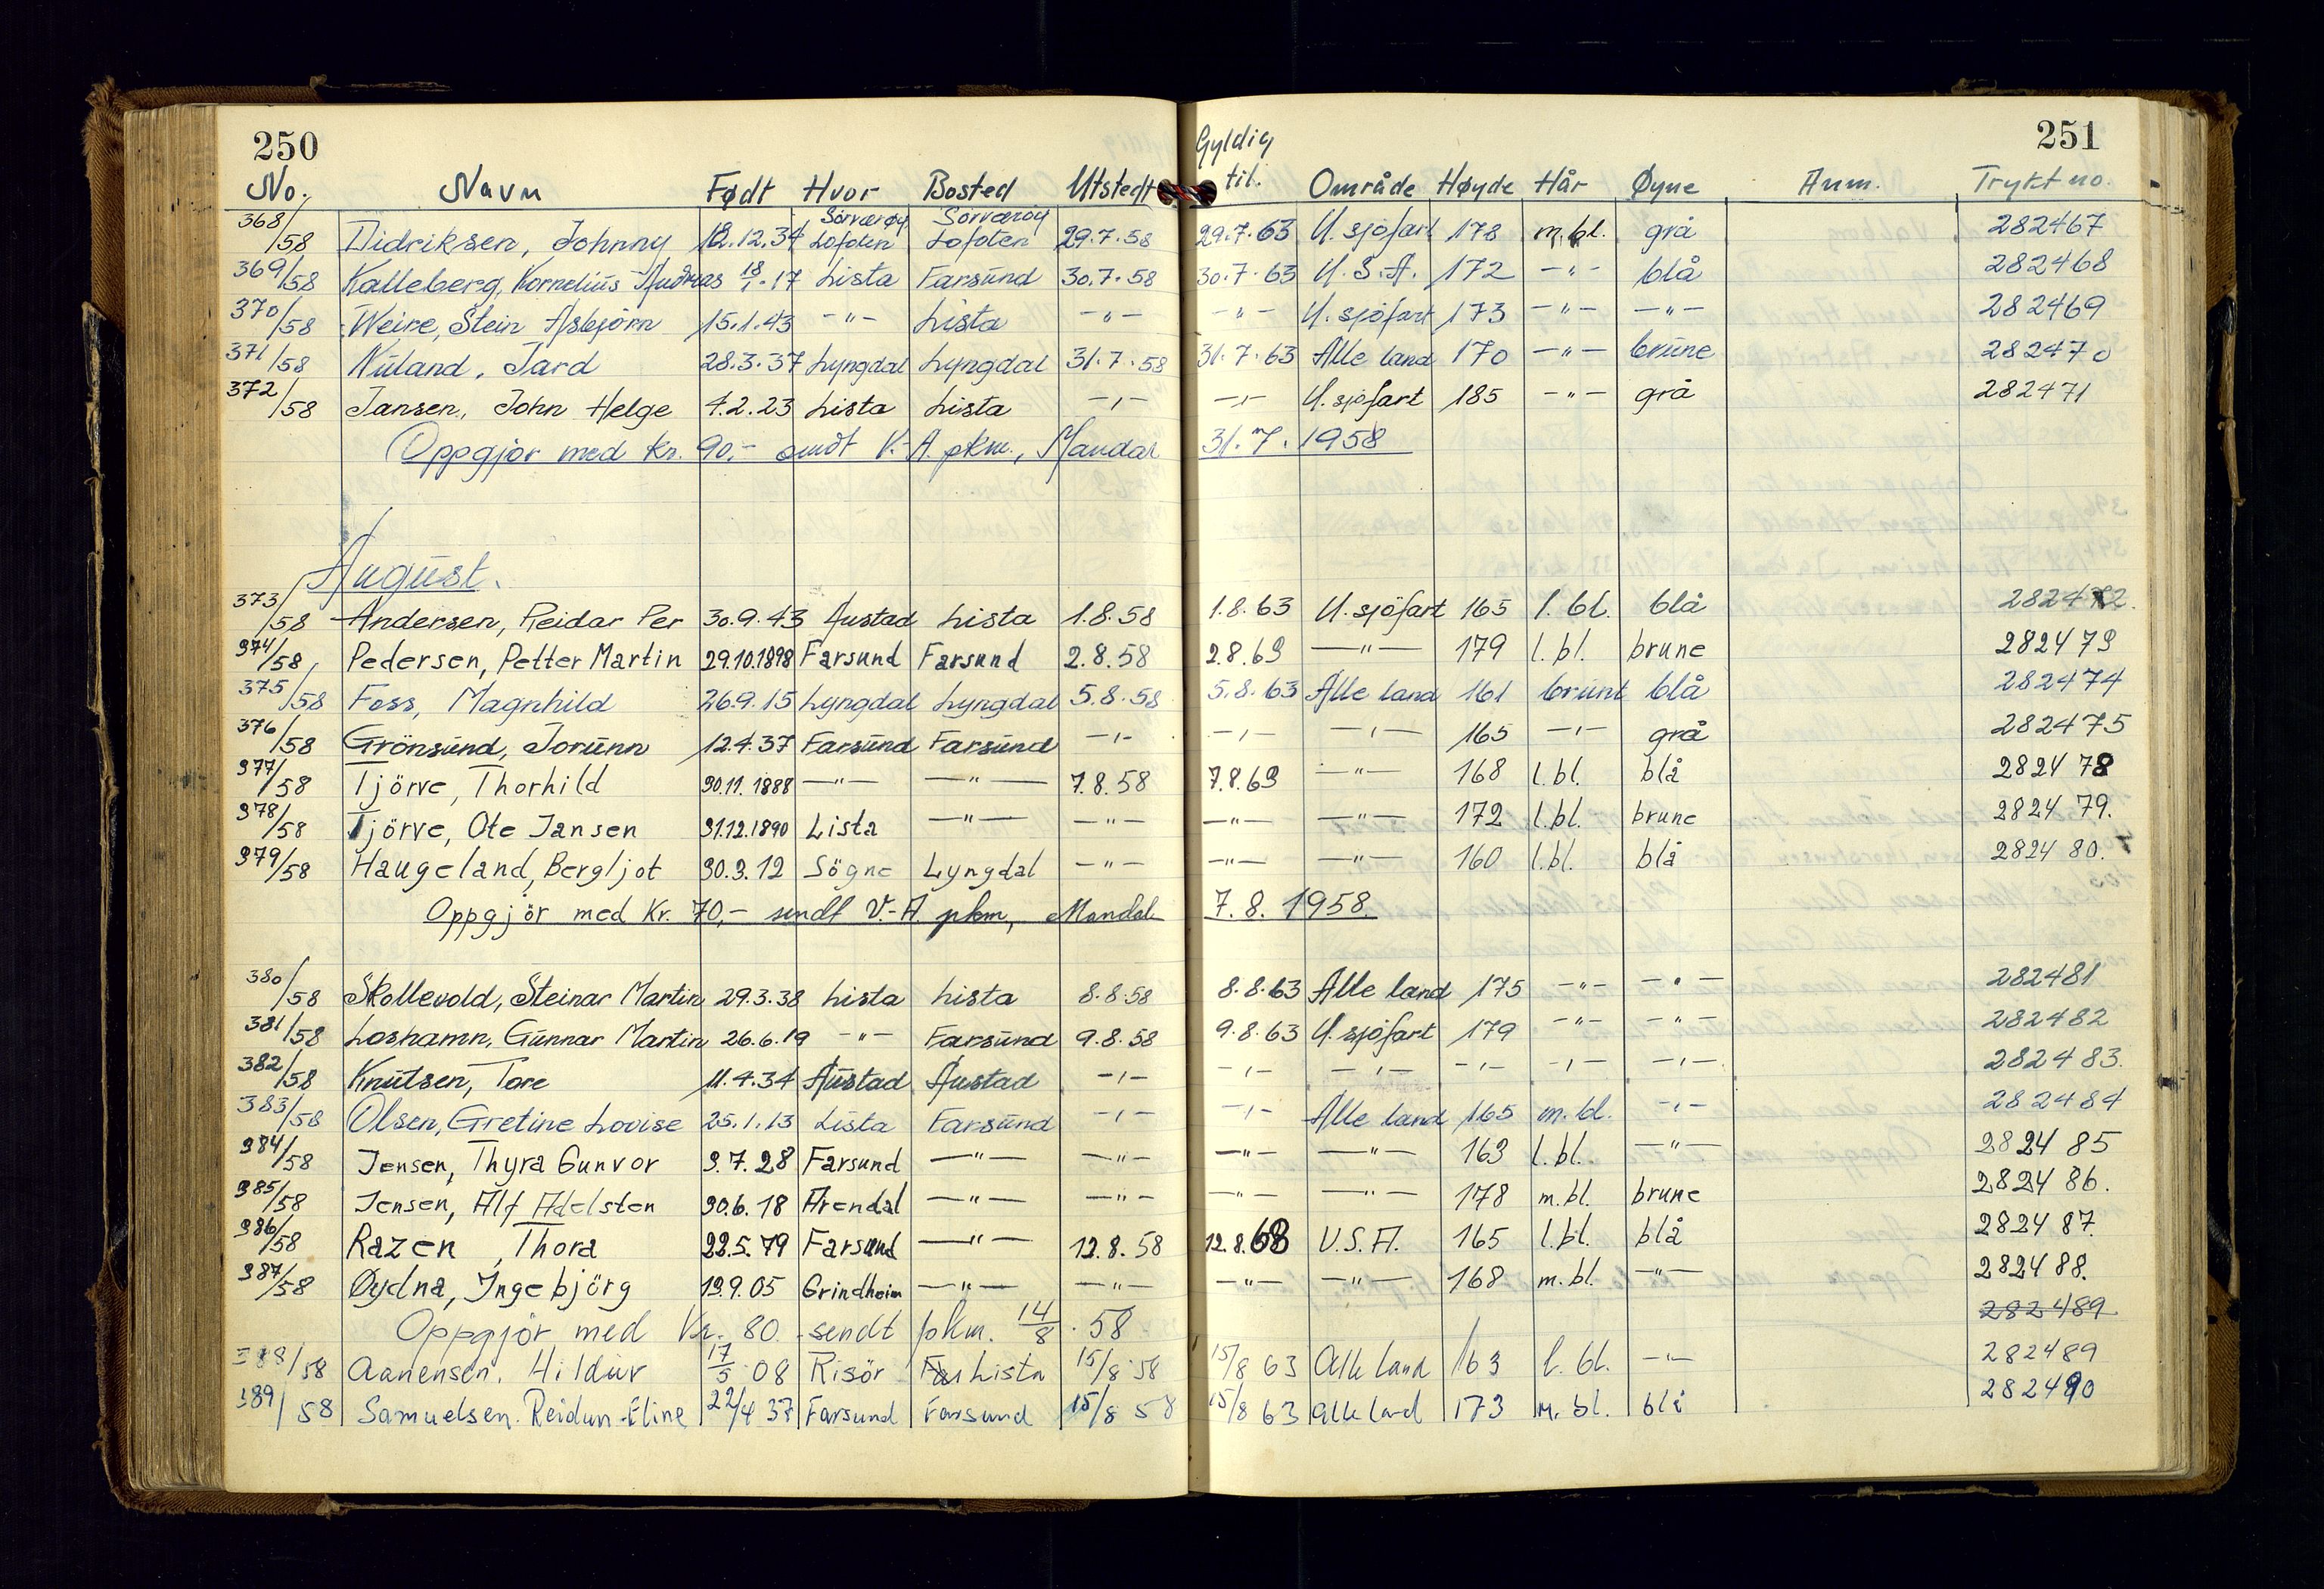 250 251
No. Navn Født Hvor Bosted Utstedt Gyldig til. Område Høyde Hår Øyne Anm. Trykt no.
368/58 Didriksen, Johnny 12.12.34 Sørværøy Lofoten Sørværøy Lofoten 29.7.58 29.7.63 U. sjöfart 178 m.bl. grå 282467
369/58 Kalleberg, Kornelius Andreas 18/1.17 Lista Farsund 30.7.58 30.7.63 U.S.A. 172 -"- blå 282468
370/58 Weire, Stein Asbjörn 15.1.43 -"- Lista -"- -"- U. sjöfart 173 -"- -"- 282469
371/58 Nuland, Tard 28.3.37 Lyngdal Lyngdal 31.7.58 31.7.63 Alle land 170 -"- brune 282470
372/58 Jansen, John Helge 4.2.23 Lista Lista -,- -,- U. sjöfart 185 -"- grå 282471
Oppgjör med kr. 90,- sendt V.-A. pkm., Mandal 31.7.1958
August.
373/58 Andersen, Reidar Per 30.9.43 Austad Lista 1.8.58 1.8.63 U. sjöfart 165 l. bl. blå 282472.
374/58 Pedersen, Petter Martin 29.10.1898 Farsund Farsund 2.8.58 2.8.63 -"- 179 l.bl. brune 282473
375/58 Foss, Magnhild 26.9.15 Lyngdal Lyngdal 5.8.58 5.8.63 Alle land 161 brunt blå 282474
376/58 Grönsund, Jorunn 12.4.37 Farsund Farsund -,- -,- -,- 165 -,- grå 282475
377/58 Tjörve, Thorhild 30.11.1888 -"- -"- 7.8.58 7.8.63 -"- 168 l.bl. blå 282478
378/58 Tjörve, Ote Jansen 31.12.1890 Lista -"- -"- -"- -"- 172 l.bl. brune 282479.
379/58 Haugeland, Bergljot 30.3.12 Sögne Lyngdal -"- -"- -"- 160 l.bl. blå 282480.
Oppgjör med Kr. 70,- sendt V.-A pkm, Mandal 7.8.1958.
380/58 Skollevold, Steinar Martin 29.3.38 Lista Lista 8.8.58 8.8.63 Alle land 175 -"- -"- 282481
381/58 Loshamn, Gunnar Martin 26.6.19 -"- Farsund 9.8.58 9.8.63 U. sjöfart 179 -"- -"- 282482
382/58 Knutsen, Tore 11.4.34 Austad Austad -,- -,- -,- -,- -,- -,- 282483.
383/58 Olsen, Gretine Lovise 25.1.13 Lista Farsund -,- -,- Alle land 165 m. bl. -,- 282484
384/58 Jensen, Thyra Gunvor 3.7.28 Farsund -"- -"- -"- -"- 163 l.bl. -"- 282485
385/58 Jensen, Alf Adelsten 30.6.18 Arendal -"- -"- -"- -"- 178 m.bl. brune 282486.
386/58 Razen, Thora 22.5.79 Farsund -"- 12.8.58 12.8.68 U.S.A. 165 l.bl. blå 282487.
387/58 Øydna, Ingebjörg 13.9.05 Grindheim -"- -"- -"- -"- 168 m.bl. -"- 282488.
Oppgjör med Kr. 80.- sendt pkm. 14/8.58 282489
388/58 Aanensen, Hildur 17/5 08 Risör Lista 15/8 58 15/8 63 Alle land 163 l. bl. -"- 282489
389/58 Samuelsen. Reidun Eline 22/4 37 Farsund Farsund 15/8 58 15/8 63 alle land 173 m. bl. blå 282490